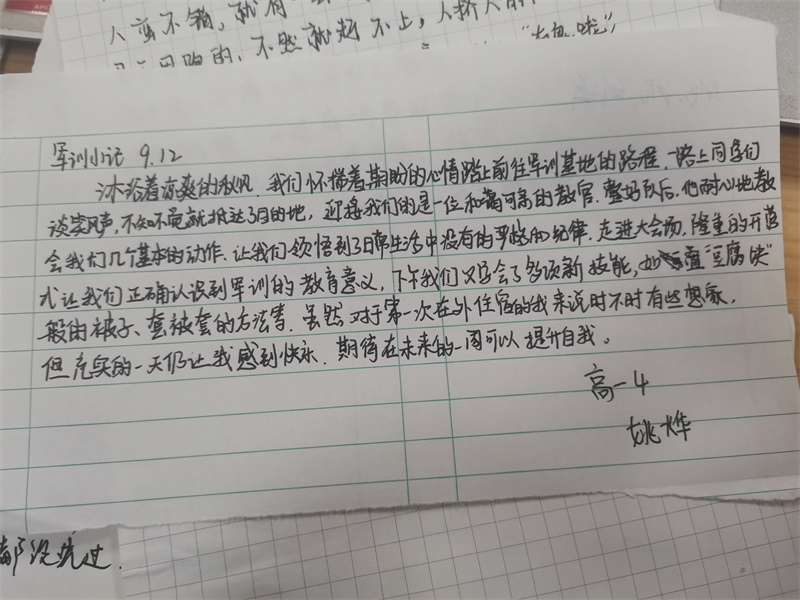 人蛮不错，就有
不然就赶不上，人挤人的
军训小记 9.12
沐浴着凉爽的秋风，我们怀揣着期盼的心情踏上前往军训基地的路程，一路上同学们
谈笑风声，不知不觉就抵达了目的地，迎接我们的是一位和蔼可亲的教官。整好队后，他耐心地教
会我们几个基本的动作，让我们领悟到了日常生活中没有的严格的纪律。走进大会场，隆重的开营
式让我们正确认识到军训的教育意义，下午我们又学会了多项新技能，如叠“豆腐块”
般的被子、套被套的方法等。虽然对于第一次在外住宿的我来说时不时有些想家，
但充实的一天仍让我感到快乐，期待在未来的一周可以提升自我。
高一4
姚烨
都没洗过.